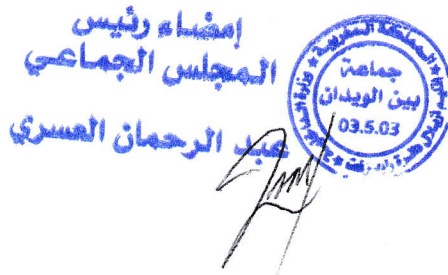 إمضاء رئيس
المجلس الجماعي
عبد الرحمان العسري
المملكة المغربية
وزارة الداخلية
جماعة
بين الويدان
03.5.03